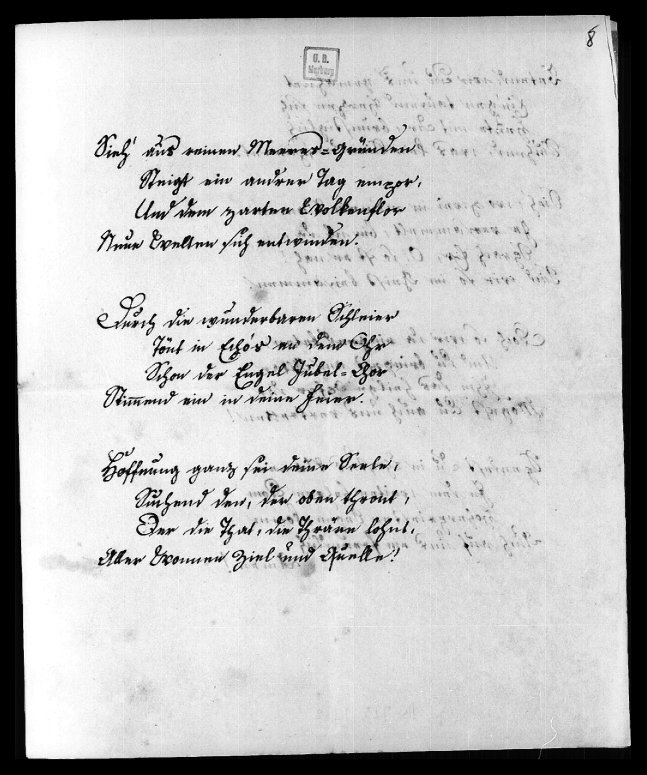 8
U. B.
Marburg
Sieh' aus reinen Meeres-Gründen
Steigt ein andrer Tag empor,
Und dem zarten Wolkenflor
Neue Welten sich entwinden.
Durch die wunderbaren Schleier
Tönt in Echos an dem Ohr
Schon der Engel Jubel-Chor
Stimmend ein in deine Feier.
Hoffnung ganz sei deine Seele,
Suchend den, der oben thront,
Der die That, die Thräne lohnt,
Aller Wonnen Ziel und Quelle!